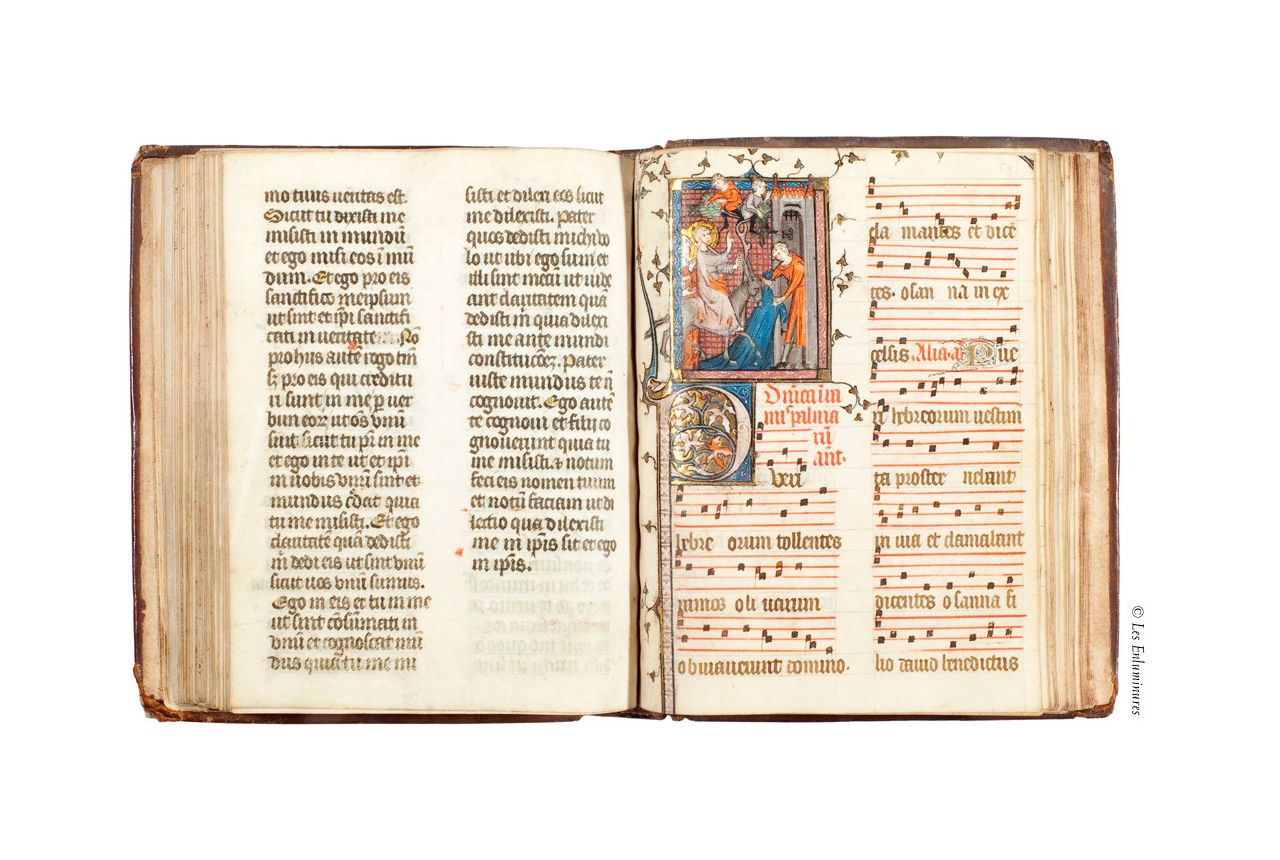 mo tuus ueritas est.
Sicut tu dixisti me
misisti in mundū
et ego misi eos ī mū
dum. Et ego pro eis
sanctifico meipsum
ut sint et ip̄i sanctifi
cati in ueritate. Nō
pro hiis autē rogo tm̄
sꝫ pro eis qui creditu
ri sunt in me p uer
bum eorꝫ ut oēs vnū
sint sicut tu pr̄ in me
et ego in te ut et ip̄i
in nobis vnū sint et
mundus c̄dat quia
tu me misisti. Et ego
claritatē quā dedisti
m̄ dedi eis ut sint vnū
sicut nos vnū sumus.
Ego in eis et tu in me
ut sint cōsūmati in
vnū et cognoscat mū
dus quia tu me mi
sisti et dilexi eos sicut
me dilexisti. Pater
quos dedisti michi uo
lo ut ubi ego sum et
illi sint mecū ut uide
ant claritatem quā
dedisti m̄ quia dilexi
sti me ante mundi
constitucōeꝫ. Pater
iuste mundus te n̄
cognouit. Ego autē
te cognoui et hii co
gnouerunt quia tu
me misisti. ⁊ notum
feci eis nomen tuum
et notū faciam ut di
lectio qua dilexisti
me in ip̄is sit et ego
in ip̄is.
Dn̄ica in
ramis palma
rū
ant.
Pueri
hebre orum tollentes
ramos oli uarum
obuiauerunt domino.
cla mantes et dicē
tes. osan na in ex
celsis. Alia. a. Pue
ri hebreorum uestim
ta proster nebant
in uia et clamabant
dicentes osanna fi
lio dauid benedictus
© Les Enluminures